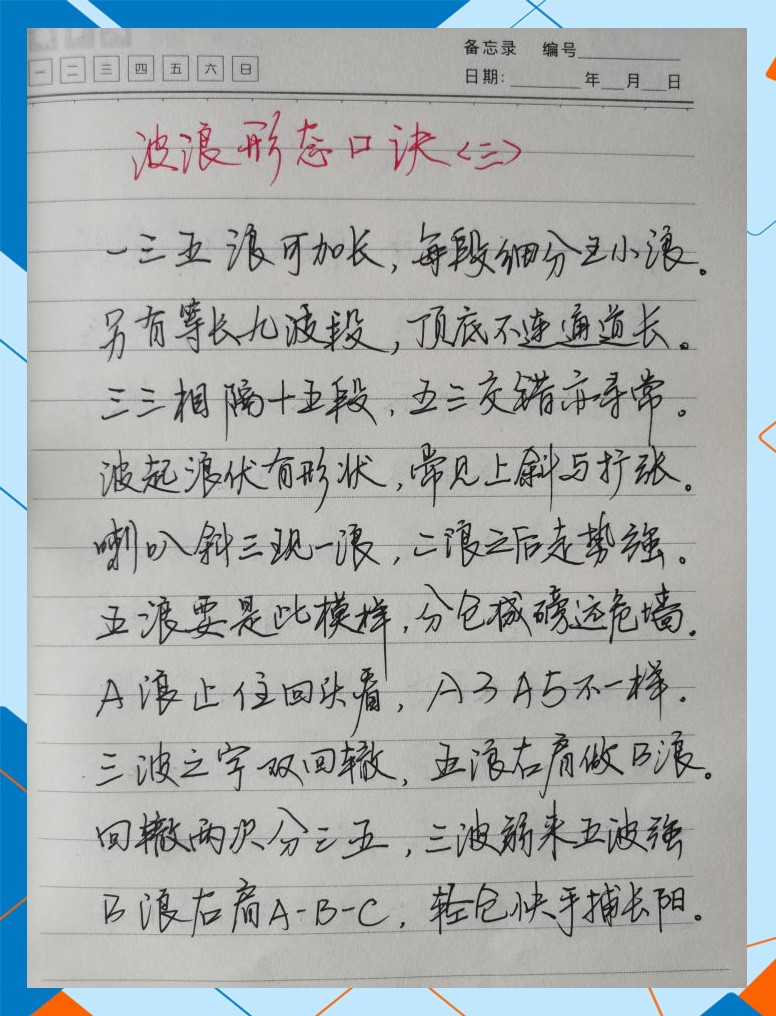 备忘录 编号
一 二 三 四 五 六 日
日期: 年 月 日
波浪形态口诀<三>
一三五浪可加长,每段细分五小浪。
另有等长九波段,顶底不连通道长。
三三相隔十五段,五三交错亦寻常。
波起浪伏有形状,常见上斜与扩张。
喇叭斜三现一浪,二浪之后走势强。
五浪要是此模样,分仓减磅远危墙。
A浪止住回头看,A3A5不一样.
三波之字双回辙,五浪右肩做B浪。
回辙两次分三五,三波弱来五波强
B浪右肩A-B-C,轻仓快手捕长阳。